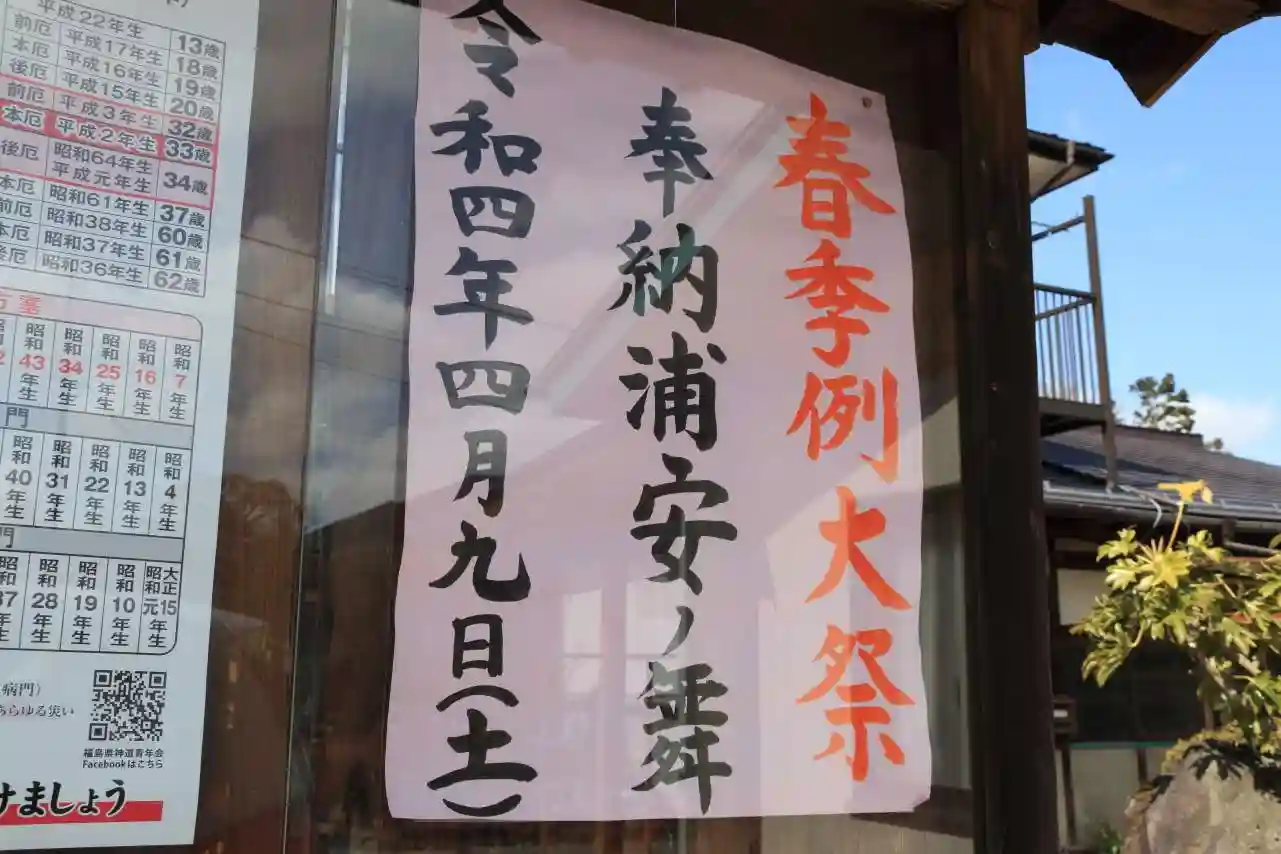 春季例大祭
奉納浦安ノ舞
令和四年四月九日(土)
平成22年生 13歳
前厄 平成17年生 18歳
本厄 平成16年生 19歳
後厄 平成15年生 20歳
前厄 平成3年生 32歳
本厄 平成2年生 33歳
後厄 昭和64年生 平成元年生 34歳
本厄 昭和61年生 37歳
前厄 昭和38年生 60歳
本厄 昭和37年生 61歳
後厄 昭和36年生 62歳
塞
昭和7年生
昭和16年生
昭和25年生
昭和34年生
昭和43年生
門
昭和4年生
昭和13年生
昭和22年生
昭和31年生
昭和40年生
門
大正15 昭和元年生
昭和10年生
昭和19年生
昭和28年生
昭和37年生
病門)
あらゆる災い
福島県神道青年会
Facebookはこちら
けましょう